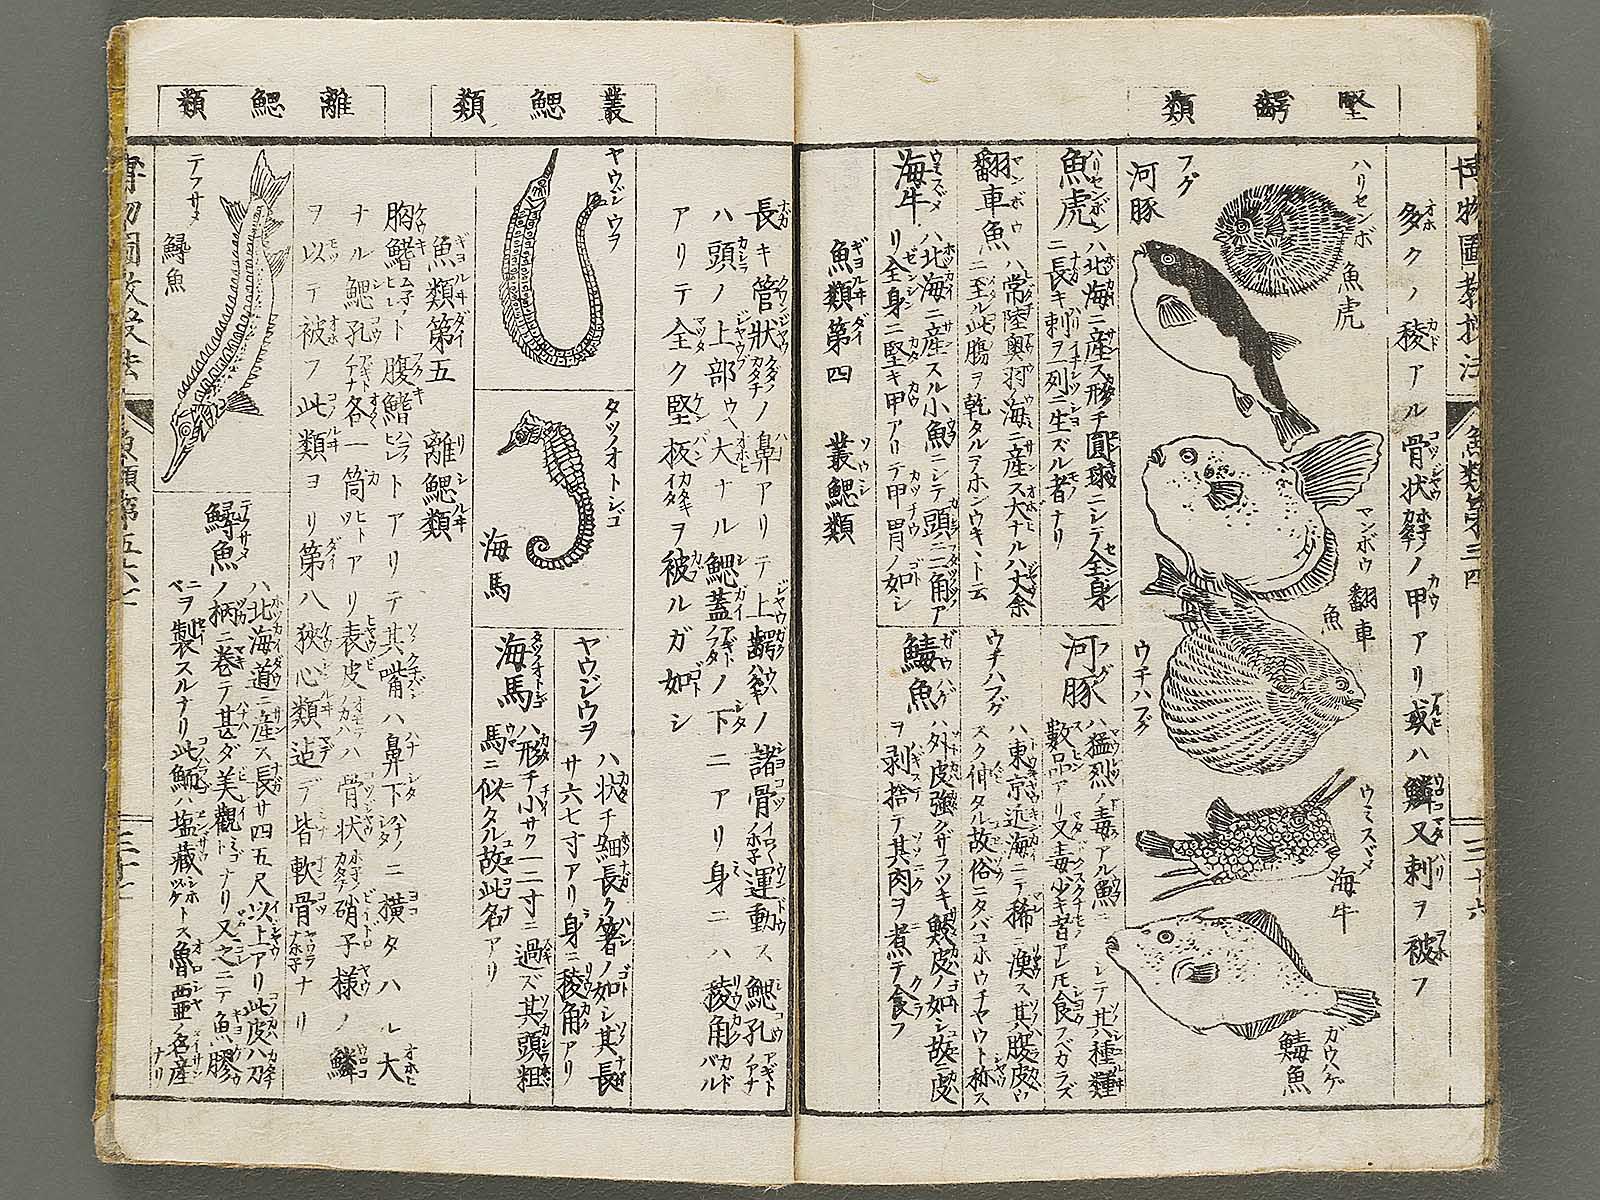 堅齶類
多クノ稜アル骨状ノ甲アリ或ハ鱗又刺ヲ被フ
ハリセンボ
魚虎
フグ
河豚
マンボウ
翻車魚
ウチハフグ
ウミスズメ
海牛
ガウハゲ
魚虎ハ北海ニ産ス形チ圓球ニシテ全身
ニ長キ刺ヲ一列ニ生ズル者ナリ
翻車魚ハ常陸奥羽ノ海ニ産ス大ナルハ丈余
ニ至ル此膓ヲ乾タルヲホンウキヽト云
海牛ハ北海ニ産スル小魚ニシテ頭ニ二角ア
リ全身ニ堅キ甲アリテ甲胃ノ如シ
河豚ハ猛烈ノ毒アル魚ニシテ其種類
數品アリ又毒少キ者アレ𪜈食スベカラズ
ウチハフグハ東京近海ニテ稀ニ漁ス其腹皮
ヲ剥捨テ其肉ヲ煮テ食フ
魚類第四 叢鰓類
叢鰓類
長キ管状ノ鼻アリテ上齶ノ諸骨運動ス鰓孔
ハ頭ノ上部ニ大ナル鰓蓋ノ下ニアリ身ニハ稜角
アリテ全ク堅板ヲ被ルガ如シ
ヤウジウヲ
タツノオトシゴ
海馬
ヤウジウヲハ状チ細長ク箸ノ如シ其長
サ六七寸アリ身ニ稜角アリ
海馬ハ形チ小サク一二寸ニ過ズ其頭粗
馬ニ似タル故此名アリ
離鰓類
魚類第五 離鰓類
胸鰭ト腹鰭トアリテ其嘴ハ鼻下ニ横タハル大
ナル鰓孔各一箇ツヽアリ表皮ハ骨状硝子様ノ鱗
ヲ以テ被フ此類ヨリ第八狹心類迠デ皆軟骨ナリ
テフサメ
鱘魚
鱘魚ハ北海道ニ産ス長サ四五尺以上アリ此皮ハ刀
ノ柄ニ巻テ甚ダ美觀ナリ又之ニテ魚膠
ヲ製スルナリ此鮞ハ塩藏トス魯西亜ノ名産ナリ